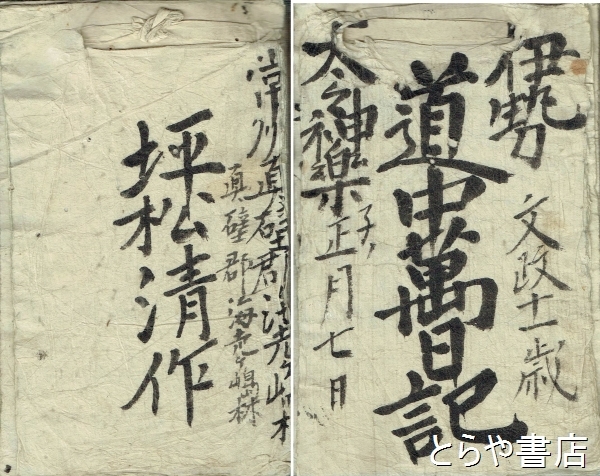 伊勢
太々神楽
道中萬日記
文政十一歳
子ノ正月七日
常州真壁郡海老ヶ嶋村
真壁郡海老ヶ嶋村
坪松清作
とらや書店